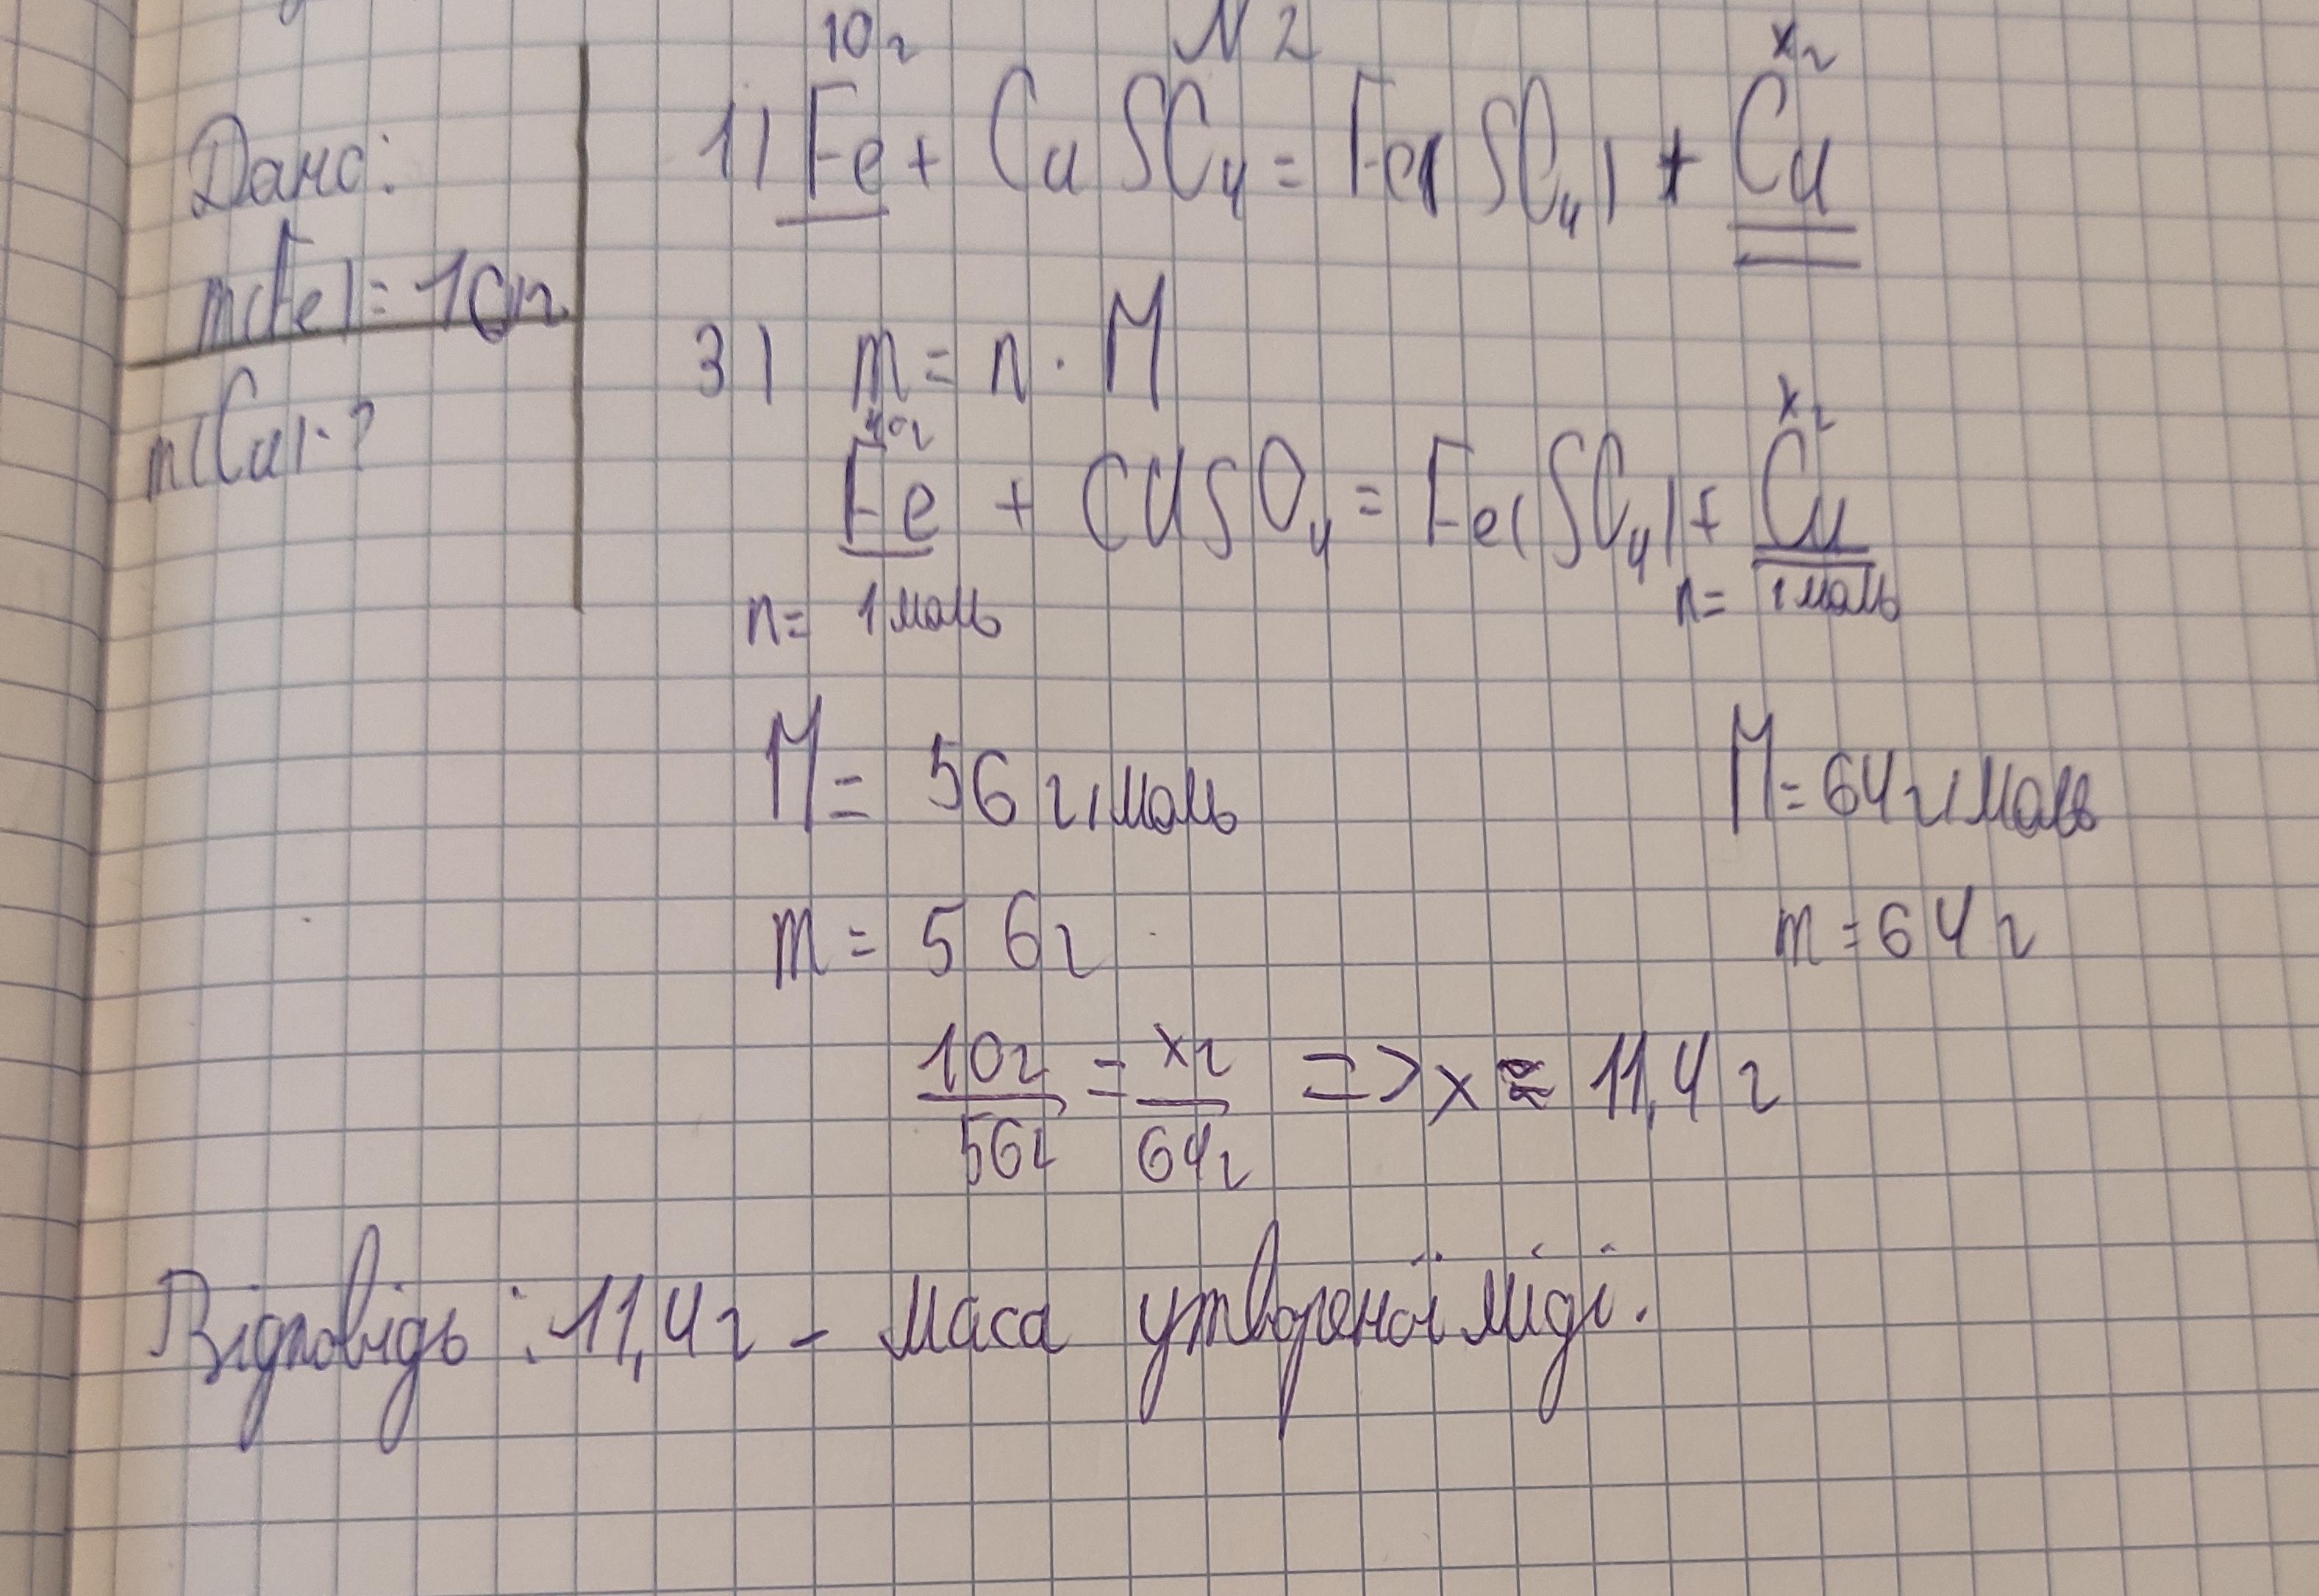 N 2
10г xг
Дано:
1) Fe + CuSO₄ = Fe(SO₄) + Cu
m(Fe) = 10г
m(Cu)-?
3) m = n · M
10г xг
Fe + CuSO₄ = Fe(SO₄) + Cu
n = 1 моль n = 1 моль
M = 56 г/моль M = 64 г/моль
m = 56г m = 64г
10г/56г = xг/64г => x ≈ 11,4 г
Відповідь: 11,4г - маса утвореної міді.